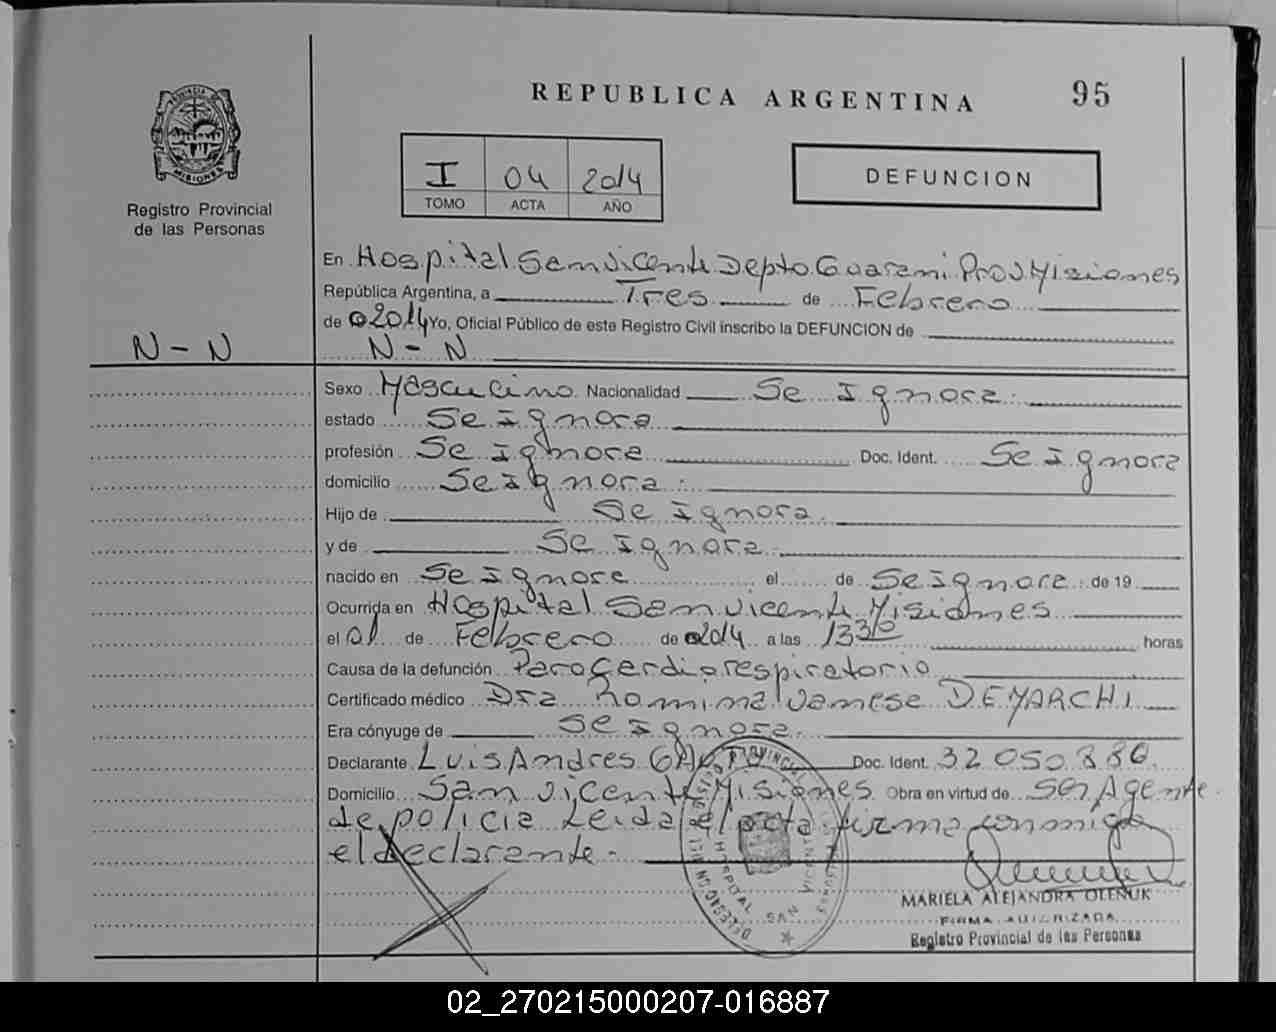 REPUBLICA ARGENTINA
95
PROVINCIA DE MISIONES
Registro Provincial
de las Personas
I 04 2014
TOMO ACTA AÑO
DEFUNCION
En Hospital San Vicente Depto Guarani Prov Misiones
República Argentina, a Tres de Febrero
de 2014 Yo, Oficial Público de este Registro Civil inscribo la DEFUNCION de
N - N
N - N
Sexo Masculino Nacionalidad Se Ignora.
estado Se Ignora
profesión Se Ignora Doc. Ident. Se Ignora
domicilio Se Ignora.
Hijo de Se Ignora.
y de Se Ignora.
nacido en Se Ignora el de Se Ignora. de 19
Ocurrida en Hospital San Vicente Misiones
el 01 de Febrero de 2014 a las 13 30 horas
Causa de la defunción Paro Cardiorespiratorio
Certificado médico Dra Romina Vanese DEMARCHI
Era cónyuge de Se Ignora.
Declarante Luis Andres Doc. Ident. 32 050 886
Domicilio San Vicente Misiones Obra en virtud de Ser Agente
de policia Leida el acta firma conmigo
el declarante.
HOSPITAL SAN VICENTE
MARIELA ALEJANDRA OLENUK
FIRMA AUTORIZADA
Registro Provincial de las Personas
02_270215000207-016887